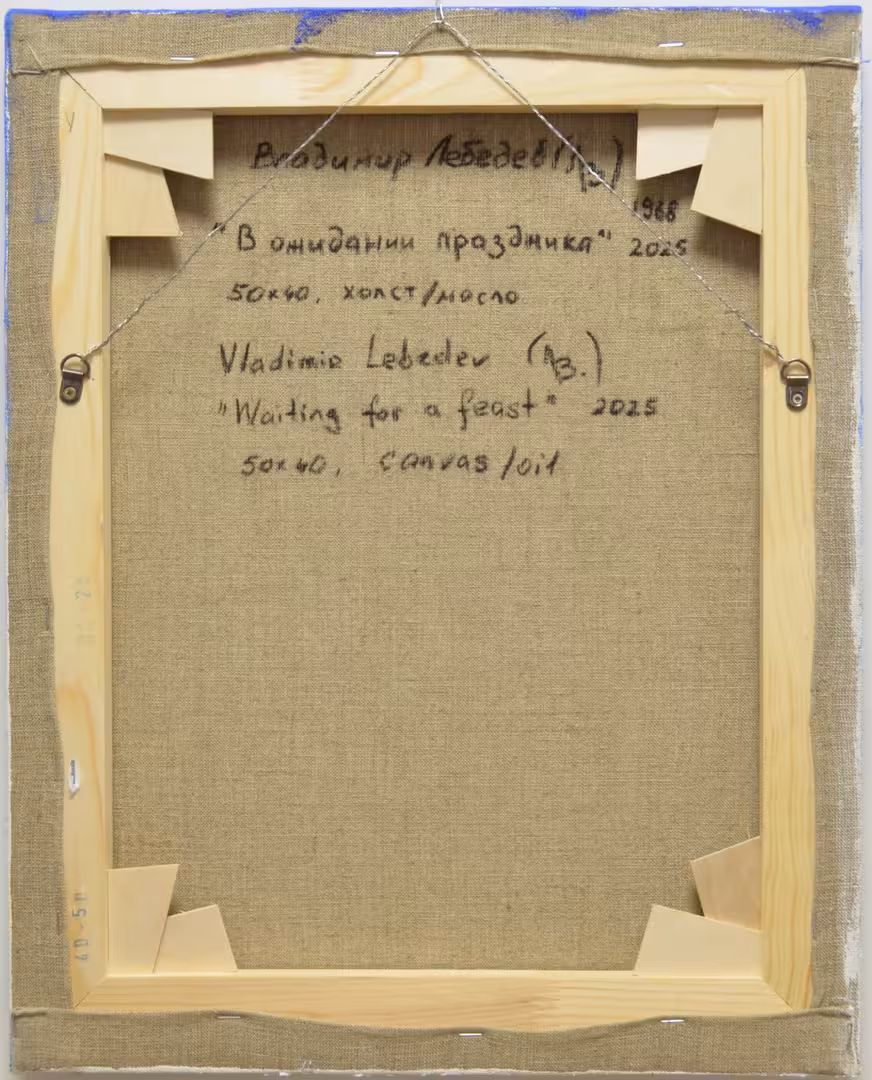 Владимир Лебедев
1968
"В ожидании праздника" 2025
50x40, холст/масло
Vladimir Lebedev
"Waiting for a feast" 2025
50x40, canvas/oil